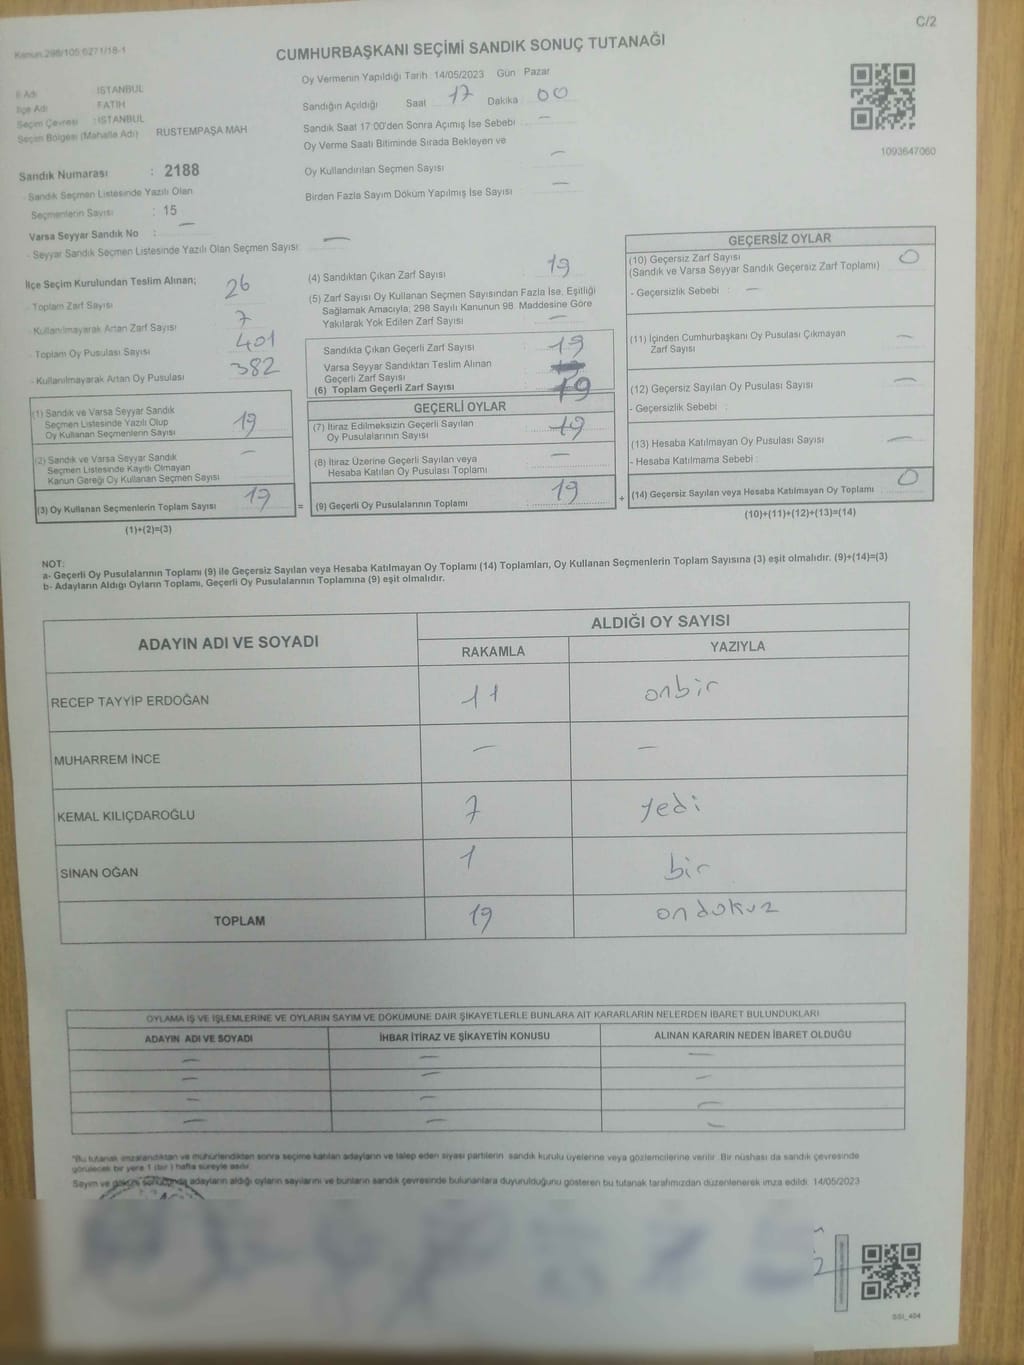 C/2
Kanun:298/105 6271/18-1
CUMHURBAŞKANI SEÇİMİ SANDIK SONUÇ TUTANAĞI
İl Adı : İSTANBUL
İlçe Adı : FATİH
Seçim Çevresi : İSTANBUL
Seçim Bölgesi (Mahalle Adı) RUSTEMPAŞA MAH
Sandık Numarası : 2188
- Sandık Seçmen Listesinde Yazılı Olan
Seçmenlerin Sayısı : 15
Varsa Seyyar Sandık No : —
- Seyyar Sandık Seçmen Listesinde Yazılı Olan Seçmen Sayısı: —
Oy Vermenin Yapıldığı Tarih :14/05/2023 Gün Pazar
Sandığın Açıldığı Saat 17 Dakika 00
Sandık Saat 17:00'den Sonra Açımış İse Sebebi —
Oy Verme Saati Bitiminde Sırada Bekleyen ve
Oy Kullandırılan Seçmen Sayısı —
Birden Fazla Sayım Döküm Yapılmış İse Sayısı —
1093647060
İlçe Seçim Kurulundan Teslim Alınan;
- Toplam Zarf Sayısı 26
- Kullanılmayarak Artan Zarf Sayısı 7
- Toplam Oy Pusulası Sayısı 401
- Kullanılmayarak Artan Oy Pusulası 382
(1) Sandık ve Varsa Seyyar Sandık
Seçmen Listesinde Yazılı Olup
Oy Kullanan Seçmenlerin Sayısı 19
(2) Sandık ve Varsa Seyyar Sandık
Seçmen Listesinde Kayıtlı Olmayan
Kanun Gereği Oy Kullanan Seçmen Sayısı —
(3) Oy Kullanan Seçmenlerin Toplam Sayısı 19
(1)+(2)=(3)
(4) Sandıktan Çıkan Zarf Sayısı 19
(5) Zarf Sayısı Oy Kullanan Seçmen Sayısından Fazla İse, Eşitliği
Sağlamak Amacıyla; 298 Sayılı Kanunun 98. Maddesine Göre
Yakılarak Yok Edilen Zarf Sayısı —
Sandıkta Çıkan Geçerli Zarf Sayısı 19
Varsa Seyyar Sandıktan Teslim Alınan
Geçerli Zarf Sayısı
(6) Toplam Geçerli Zarf Sayısı 19
GEÇERLİ OYLAR
(7) İtiraz Edilmeksizin Geçerli Sayılan
Oy Pusulalarının Sayısı 19
(8) İtiraz Üzerine Geçerli Sayılan veya
Hesaba Katılan Oy Pusulası Toplamı —
= (9) Geçerli Oy Pusulalarının Toplamı 19
GEÇERSİZ OYLAR
(10) Geçersiz Zarf Sayısı 0
(Sandık ve Varsa Seyyar Sandık Geçersiz Zarf Toplamı)
- Geçersizlik Sebebi : —
(11) İçinden Cumhurbaşkanı Oy Pusulası Çıkmayan
Zarf Sayısı —
(12) Geçersiz Sayılan Oy Pusulası Sayısı —
- Geçersizlik Sebebi :
(13) Hesaba Katılmayan Oy Pusulası Sayısı —
- Hesaba Katılmama Sebebi :
+ (14) Geçersiz Sayılan veya Hesaba Katılmayan Oy Toplamı 0
(10)+(11)+(12)+(13)=(14)
NOT:
a- Geçerli Oy Pusulalarının Toplamı (9) ile Geçersiz Sayılan veya Hesaba Katılmayan Oy Toplamı (14) Toplamları, Oy Kullanan Seçmenlerin Toplam Sayısına (3) eşit olmalıdır. (9)+(14)=(3)
b- Adayların Aldığı Oyların Toplamı, Geçerli Oy Pusulalarının Toplamına (9) eşit olmalıdır.
ADAYIN ADI VE SOYADI ALDIĞI OY SAYISI
RAKAMLA YAZIYLA
RECEP TAYYİP ERDOĞAN 11 onbir
MUHARREM İNCE — —
KEMAL KILIÇDAROĞLU 7 yedi
SİNAN OĞAN 1 bir
TOPLAM 19 ondokuz
OYLAMA İŞ VE İŞLEMLERİNE VE OYLARIN SAYIM VE DÖKÜMÜNE DAİR ŞİKAYETLERLE BUNLARA AİT KARARLARIN NELERDEN İBARET BULUNDUKLARI
ADAYIN ADI VE SOYADI İHBAR İTİRAZ VE ŞİKAYETİN KONUSU ALINAN KARARIN NEDEN İBARET OLDUĞU
— — —
— — —
— — —
— — —
*Bu tutanak imzalandıktan ve mühürlendikten sonra seçime katılan adayların ve talep eden siyasi partilerin sandık kurulu üyelerine veya gözlemcilerine verilir. Bir nüshası da sandık çevresinde
görülecek bir yere 1 (bir ) hafta süreyle asılır.
Sayım ve döküm sonucunda adayların aldığı oyların sayılarını ve bunların sandık çevresinde bulunanlara duyurulduğunu gösteren bu tutanak tarafımızdan düzenlenerek imza edildi. 14/05/2023
SSI_404